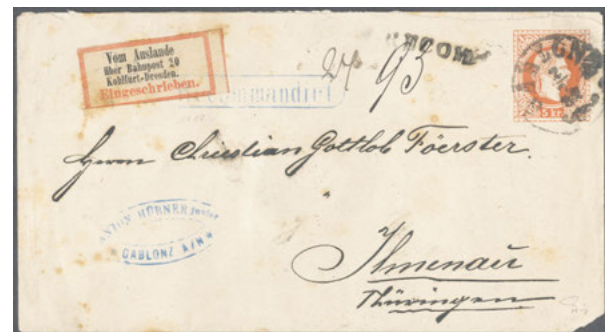 Vom Auslande
über Bahnpost 20
Kohlfurt-Dresden.
Eingeschrieben.
RECOM
93
Herrn Christian Gottlob Föerster.
ANTON HÜBNER junior
GABLONZ A/N
Ilmenau
Thüringen
5 kr.